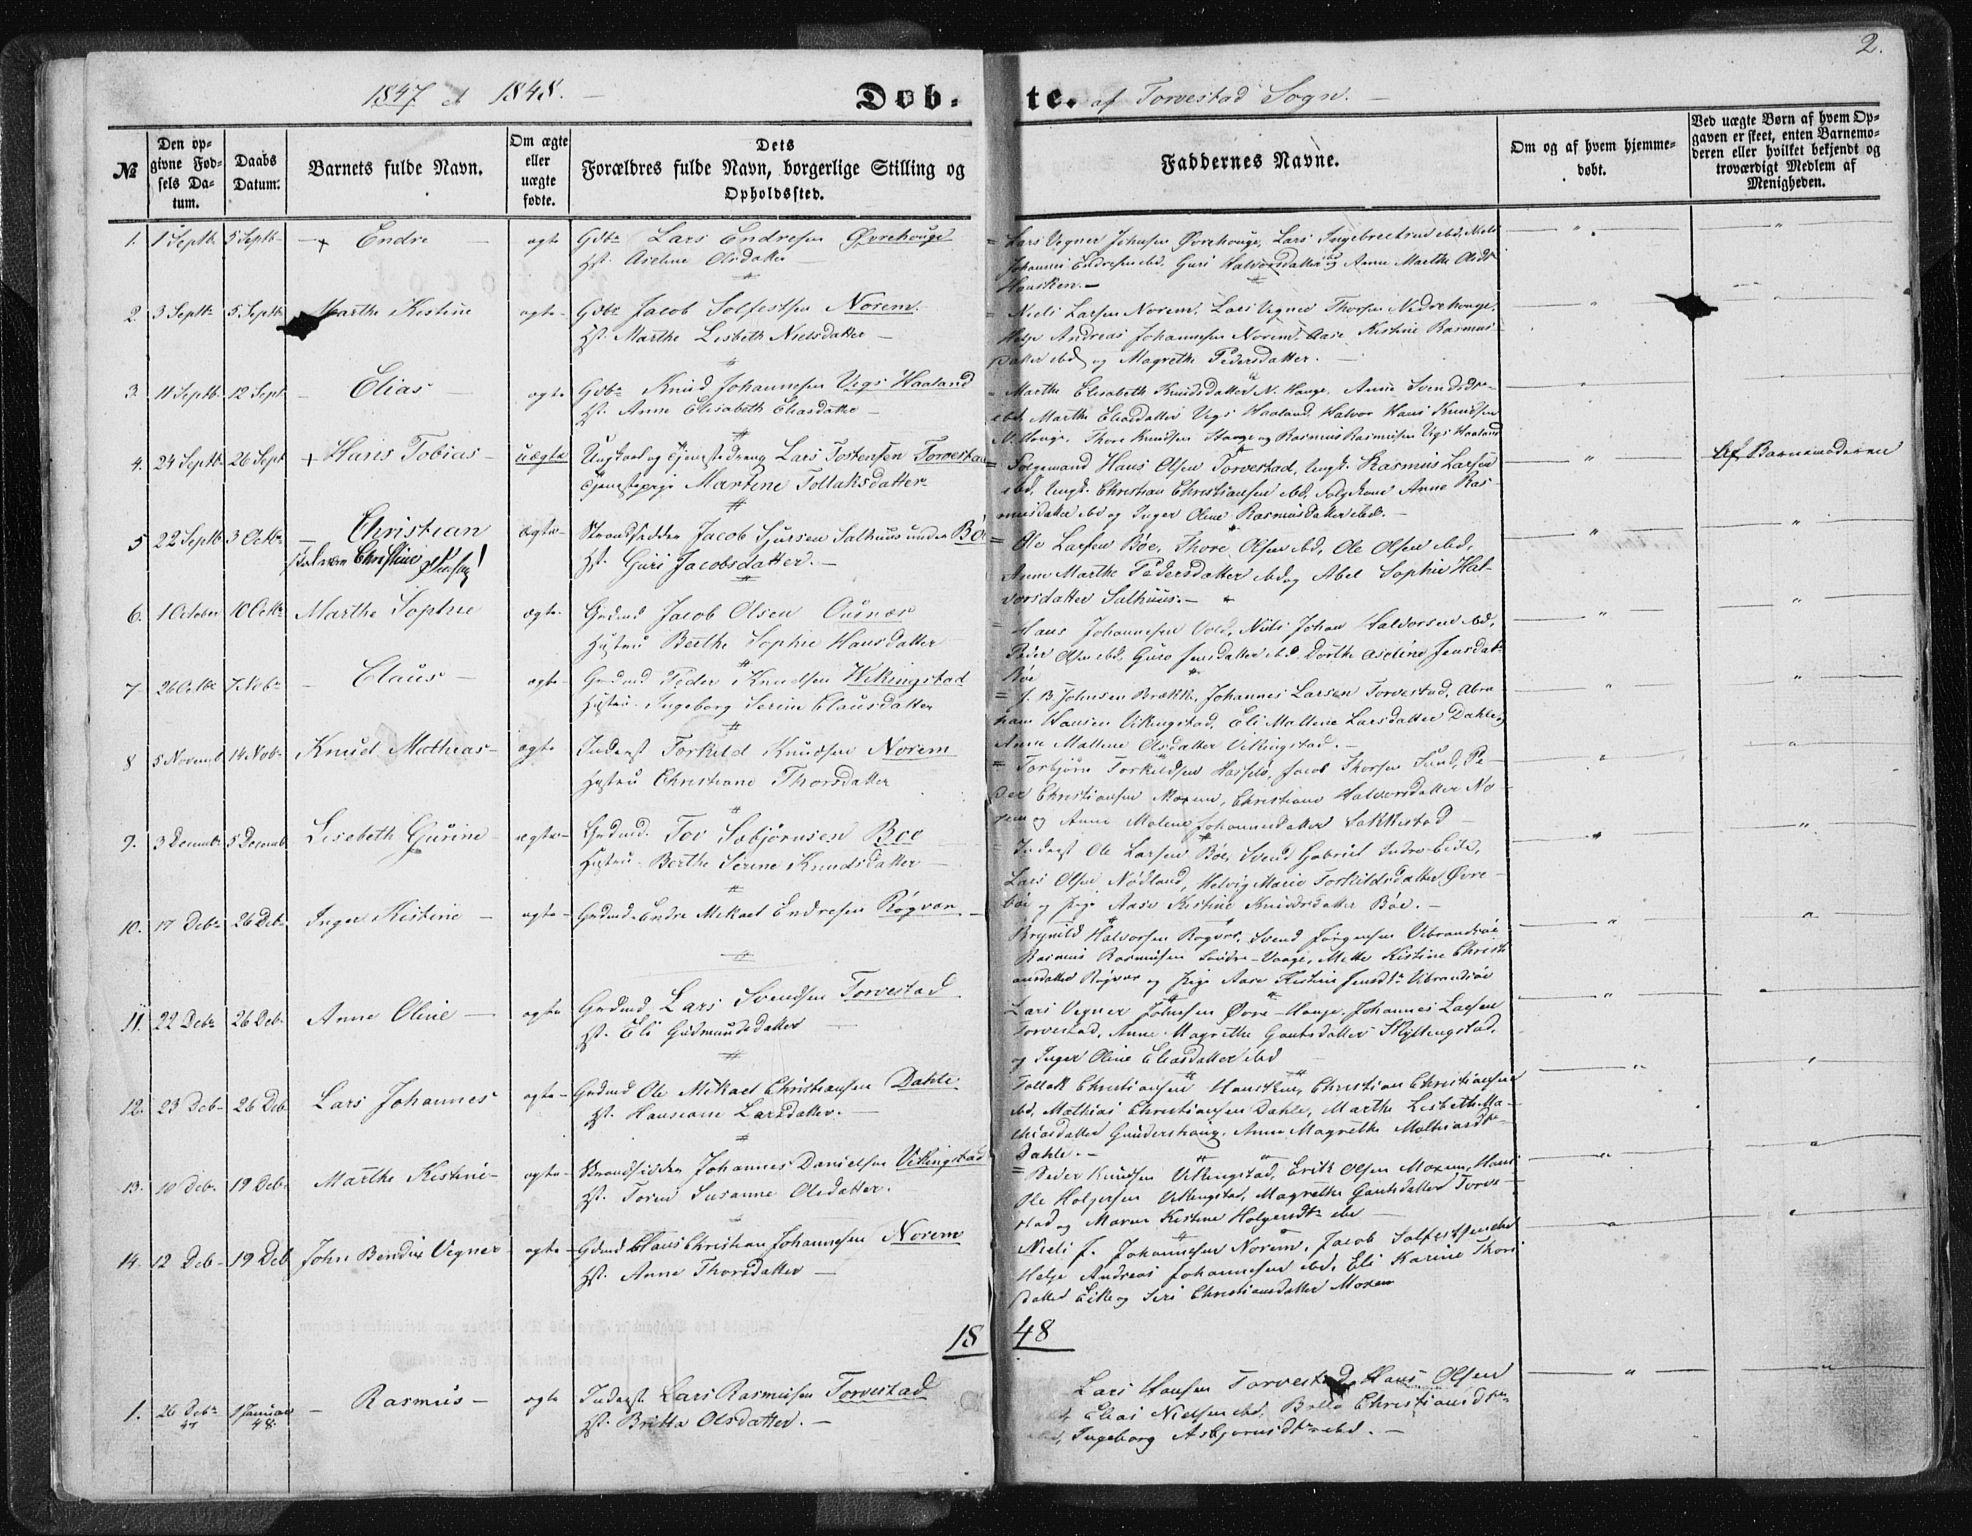 2.
1847 et 1848. —
Døb-te. af Torvestad Sogn. —
№
Den op-
givne Fød-
sels Da-
tum.
Daabs
Datum.
Barnets fulde Navn.
Om ægte
eller
uægte
fødte.
Dets
Forældres fulde Navn, borgerlige Stilling og
Opholdssted.
Faddernes Navne.
Om og af hvem hjemme-
døbt.
Ved uægte Børn af hvem Op-
gaven er skeet, enten Barnemo-
deren eller hvilket bekjendt og
troværdigt Medlem af
Menigheden.
1. 1 Septb. 5 Septb. Endre ægte Lars Endresen Øvrehouge
Aseline Olsdatter
Lars Vegner Johnsen Øvrehouge, Lars Ingebrectsen ibd, Niels
Johannes Endresen ibd, Guri Halvorsdatter og Anne Marthe
Housken. —
2. 3 Septb. 5 Septb. Marthe Kistine ægte Jacob Solfestsen Norem
Marthe Lisbeth Nielsdatter —
Niels Larsen Norem, Lars Vegner Thorsen Nedrehouge,
Helje Andreas Johannesen Norem, Aase Kistine Rasmus-
datter ibd og Magrethe Pedersdatter. —
3. 11 Septb. 12 Sept Elias ægte Knud Johannesen Vigs Haaland
Anne Elisabeth Eliasdatter —
Marthe Elisabeth Knudsdatter N. Houge, Anne
ibd, Marthe Eliasdatter Vigs Haaland, Halvor Hans Knudsen
N. Houge, Thore Knudsen og Rasmus Rasmusen Vigs Haaland
4. 24 Septb. 26 Sept + Hans Tobias — uægte Ungkarl og Tjenestedreng Lars Tostensen Torvestad
Tjenestepige Martine Tollaksdatter
Folgemand Hans Olsen Torvestad, Ungk. Rasmus Larsen
ibd, Ungk. Christian Christiansen ibd, Folgekone Anne Ras-
musdatter ibd og Inger Oline Rasmusdatter ibd. —
Af Barnemoderen
5 22 Septb 3 Octbr Christian ægte Strandsidder Jacob Sjursen Salhuus under Bøe
skal være Christine
Guri Jacobsdatter. —
Ole Larsen Bøe, Thore Olsen ibd, Ole Olsen ibd,
Anne Marthe Pedersdatter ibd og Abel Sophie Hal-
vorsdatter Salhuus. —
6. 1 October 10 Octbr Marthe Sophie ægte Grdmd Jacob Olsen
Hustru Berthe Sophie Hansdatter
Hans Johannesen Vold, Niels Johan Halvorsen ibd,
Peder Olsen ibd, Guro Jensdatter ibd, Dorthe Aseline Jensdatter
Bøe
7 26 Octbr 7 Nobr Claus — ægte Grdmd Peder Knudsen Wikingstad
Hustru Ingeborg Serine Clausdatter
J. B. Johnsen Brække, Johannes Larsen Torvestad, Abra-
ham Hansen Vikingstad, Eli Mallene Larsdatter Dahle,
Anne Mallene Olsdatter Vikingstad. —
8 5 Novemb 14 Nob Knud Mathias — ægte Inderst Torkild Knudsen Norem
Hustru Christiane Thorsdatter
Torbjørn Torkildsen Hasseløe, Jacob Thorsen Sund, Pe-
der Christiansen Moxem, Christiane Halvorsdatter No-
rem og Anne Malene Johannesdatter
9. 3 Decemb 5 Decemb Lisebeth Gurine ægte Grdmd. Tov Sebjørnsen Boe
Hustru Berthe Serine Knudsdatter
Inderst Ole Larsen Bøe, Svend Gabriel Indre-Eide,
Lars Olsen Nødland, Helvig Marie Torkildsdatter Øvre-
bøe og pige Aase Kistine Knudsdatter Bøe. —
10. 17 Debr 26 Debr Inger Kistine — ægte Grdmd. Endre Mikael Endresen Røgvar —
Brynild Halvorsen Rogvar, Svend Jørgensen Vibrandsøe
Rasmus Rasmusen Søndre-Vaage, Mette Kistine Christi-
ansdatter Røgvar og pige Aase Kistine Vibrandsøe
11. 22 Debr 26 Deb. Anne Oline — ægte Grdmd Lars Svendsen Torvestad
Eli Gudmundsdatter —
Lars Vegner Johnsen Øvre-Houge, Johannes Larsen
Torvestad, Anne Magrethe Gautsdatter
og Inger Oline Eliasdatter ibd
12. 23 Deb. 26 Deb Lars Johannes ægte Grdmd Ole Mikael Christiansen Dahle
Hansine Larsdatter. —
Tollak Christiansen Housken, Christian Christiansen
ibd, Mathias Christiansen Dahle, Marthe Lisbeth Ma-
thiasdatter Gundershaug, Anne Magrethe Mathiasdtr
Dahle. —
13. 10 Deb. 19 Deb. Marthe Kistine — ægte Strandsidder Johannes Danielsen Vikingstad
Susanne Olsdatter.
Peder Knudsen Vikingstad, Erik Olsen Moxem, Hans
Ole Holgersen Vikingstad, Magrethe Gautsdatter Torve-
stad og Maren Kistine Holgersdtr ibd —
14. 12 Deb. 19 Deb John Bendix Vegner ægte Grdmd Hans Christian Johannesen Norem
Anne Thorsdatter —
Niels J. Johannesen Norem, Jacob Solfestsen ibd
Helje Andreas Johannesen ibd, Eli Karine Thors
datter Eike og Siri Christiansdatter Moxem
1848
1. 26 Debr 47 1 Januar 48. Rasmus — ægte Inderst Lars Rasmusen Torvestad
Britta Olsdatter. —
Lars Hansen Torvestad, Hans Olsen
Elias Nielsen ibd, Christiansdtr
ibd, Ingeborg Asbjørnsdtr ibd. —